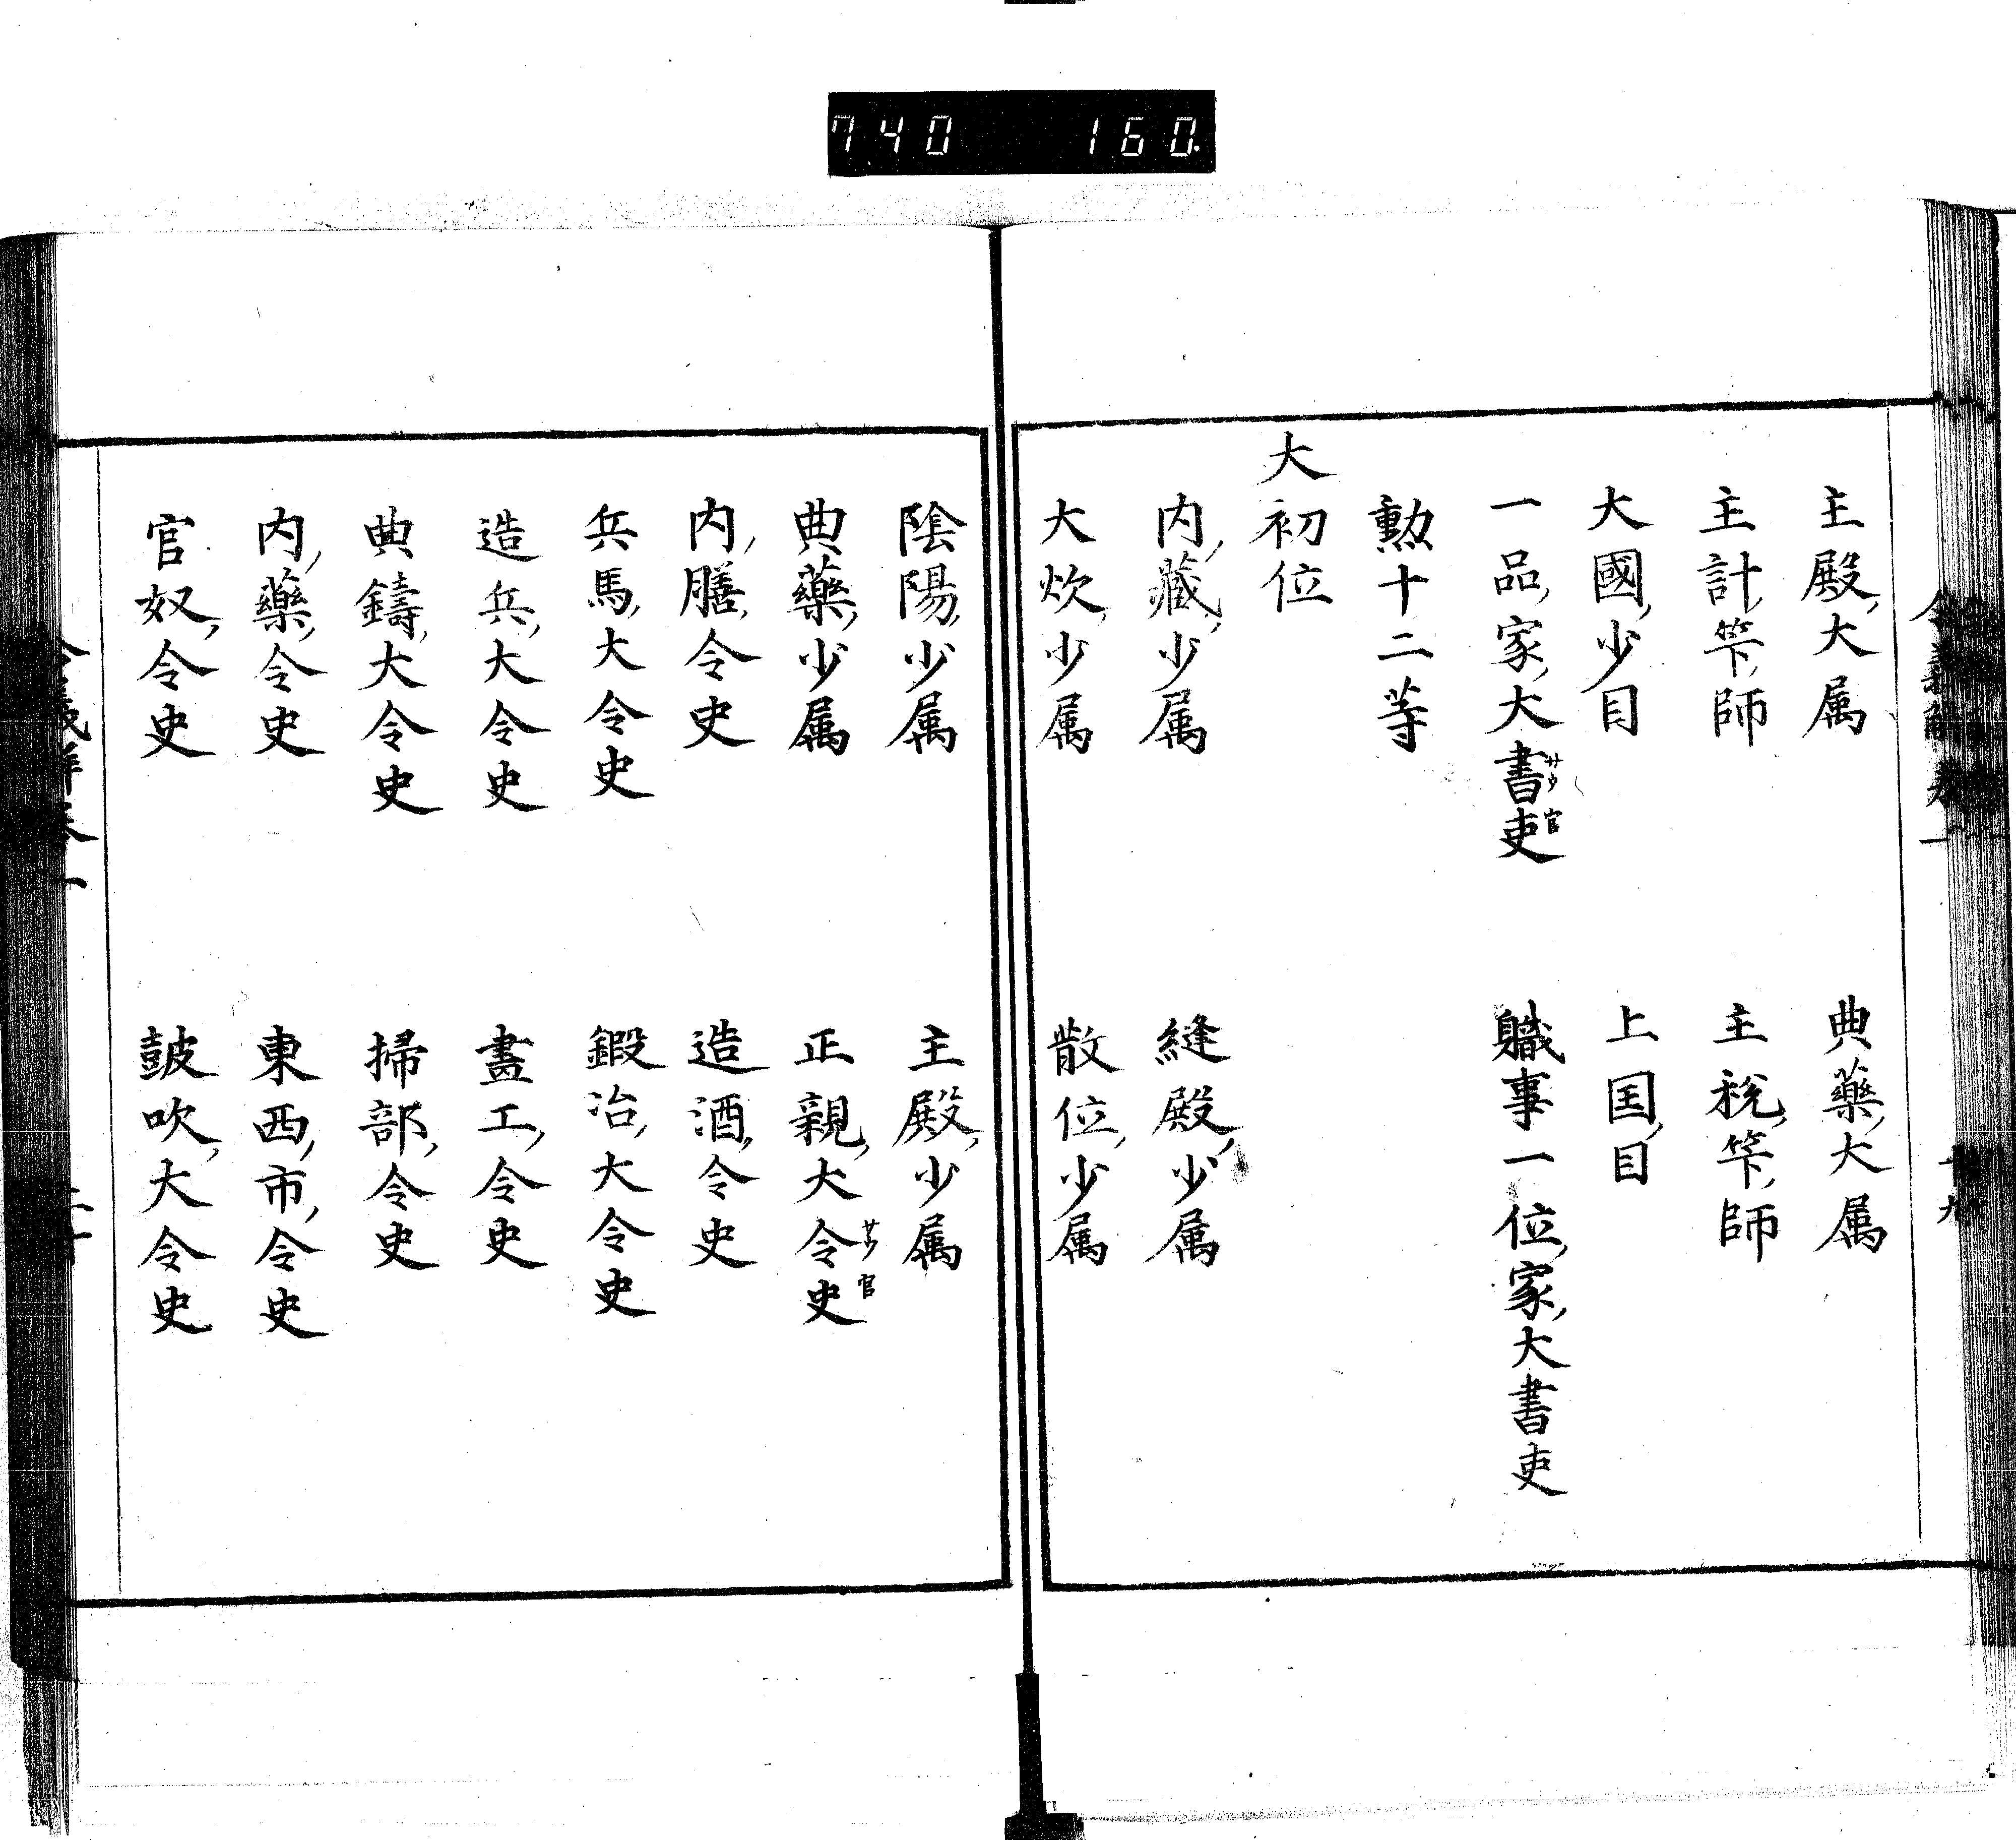 740 160.
主殿大属 典藥大属
主計筭師 主税筭師
大國少目 上国目
一品家大書吏 職事一位家大書吏
勲十二等
大初位
内藏少属 縫殿少属
大炊少属 散位少属
陰陽少属 主殿少属
典藥少属 正親大令史
内膳令史 造酒令史
兵馬大令史 鍛冶大令史
造兵大令史 畫工令史
典鑄大令史 掃部令史
内藥令史 東西市令史
官奴令史 鼓吹大令史